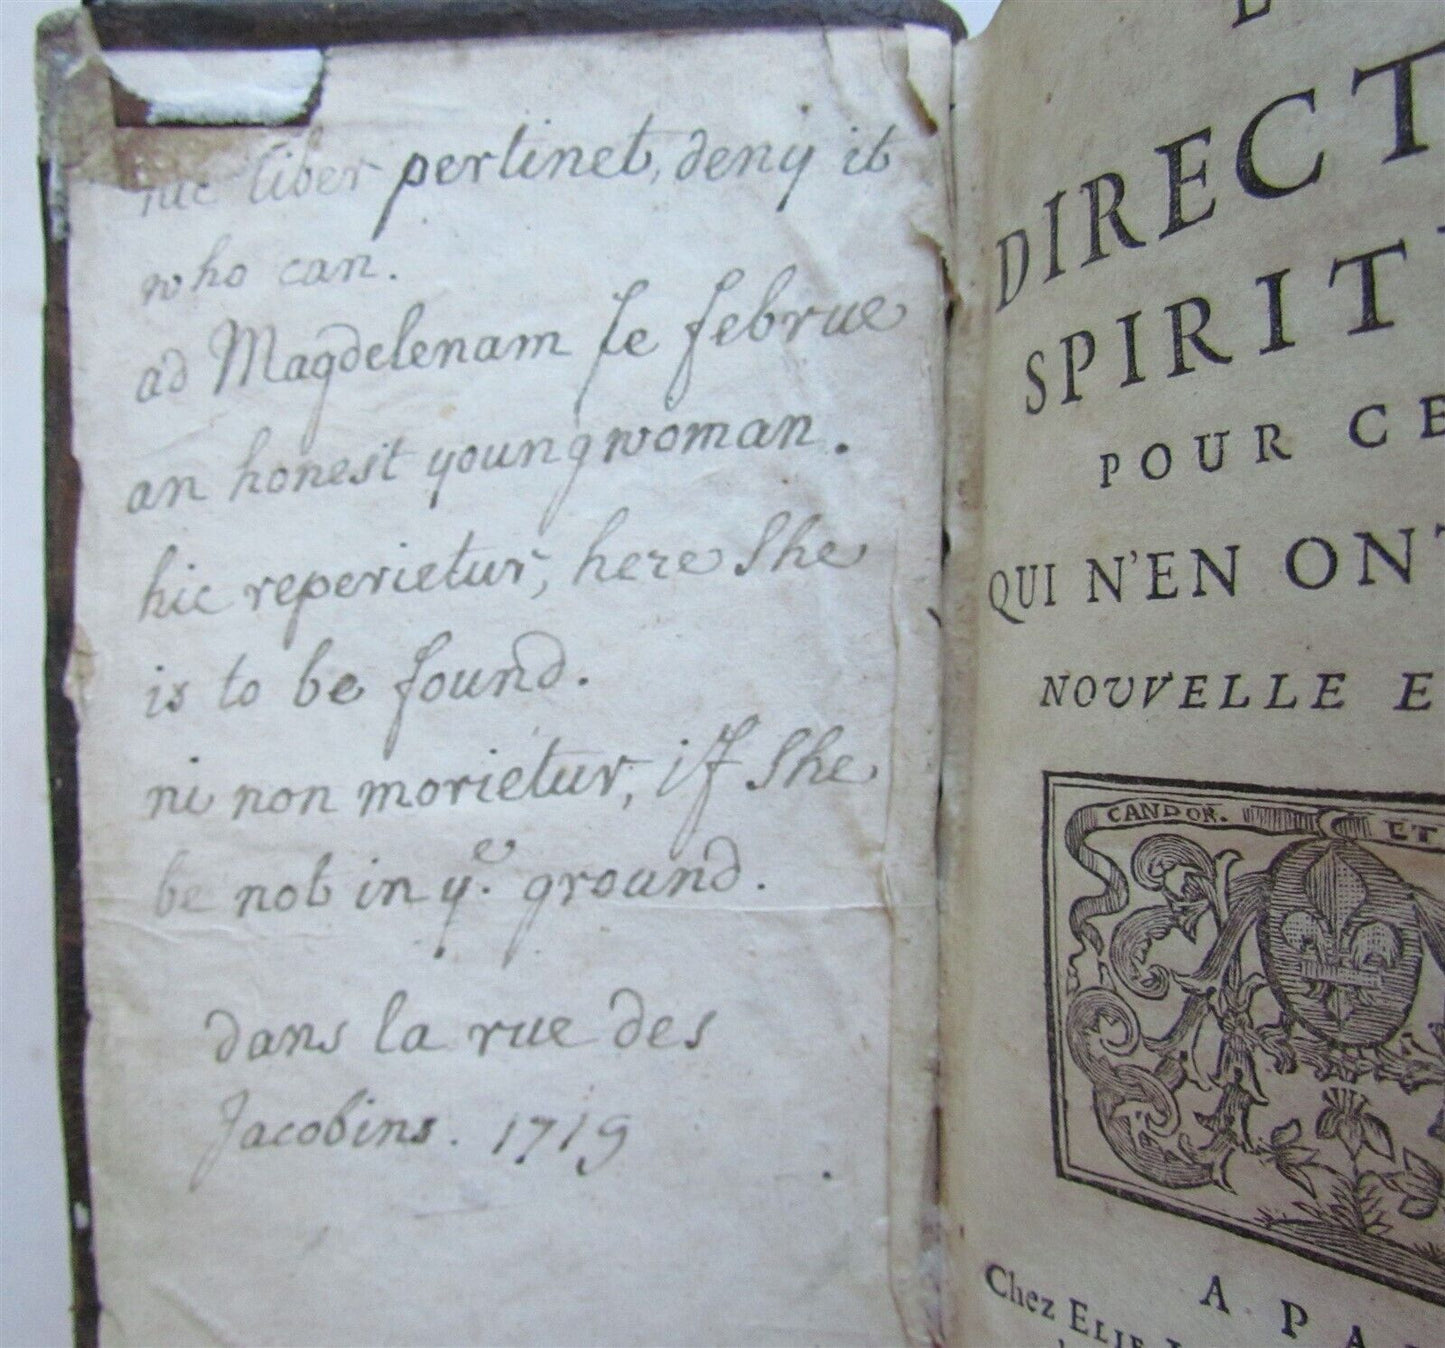 hic liber pertinet, deny it
who can.
ad Magdelenam le februe
an honest young woman.
hic reperietur, here she
is to be found.
ni non morietur, if she
be not in ye. ground.
dans la rue des
Jacobins. 1719
DIRECT
SPIRIT
POUR CE
QUI N'EN ONT
NOUVELLE E
CANDOR. ET
A PA
Chez ELIE